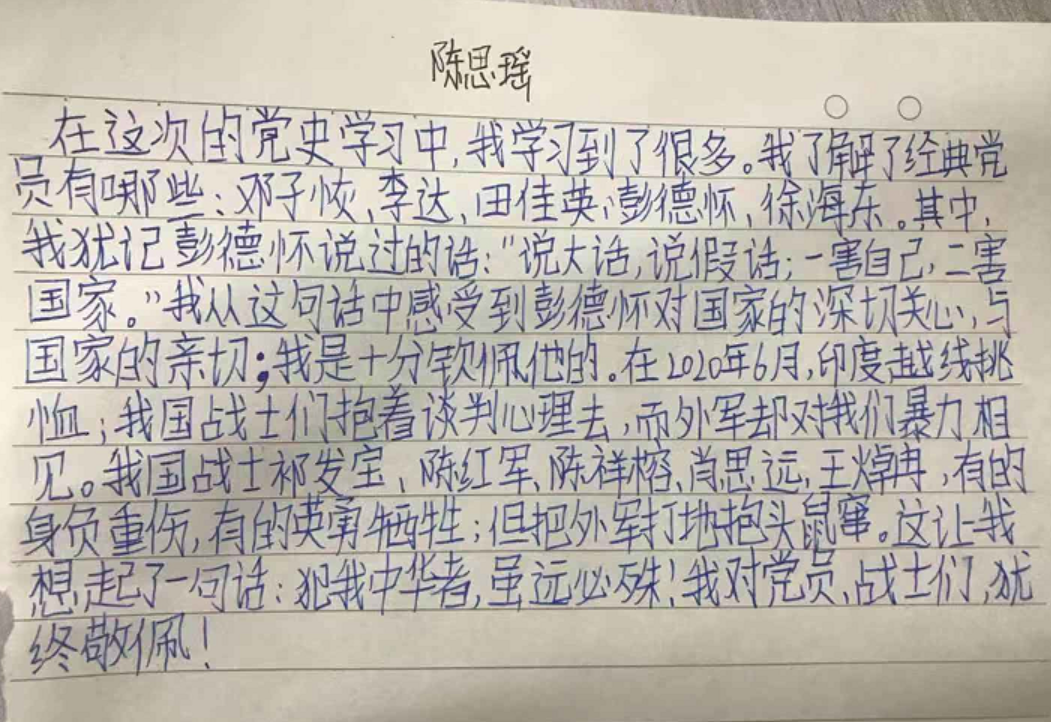 陈思瑶
在这次的党史学习中,我学习到了很多。我了解了经典党
员有哪些:邓子恢、李达、田佳英、彭德怀、徐海东。其中,
我犹记彭德怀说过的话:"说大话,说假话;一害自己,二害
国家。"我从这句话中感受到彭德怀对国家的深切关心,与
国家的亲切;我是十分钦佩他的。在2020年6月,印度越线挑
恤;我国战士们抱着谈判心理去,而外军却对我们暴力相
见。我国战士祁发宝、陈红军、陈祥榕、肖思远、王焯冉,有的
身负重伤,有的英勇牺牲;但把外军打地抱头鼠窜。这让我
想起了一句话:犯我中华者,虽远必殊!我对党员、战士们,犹
终敬佩!